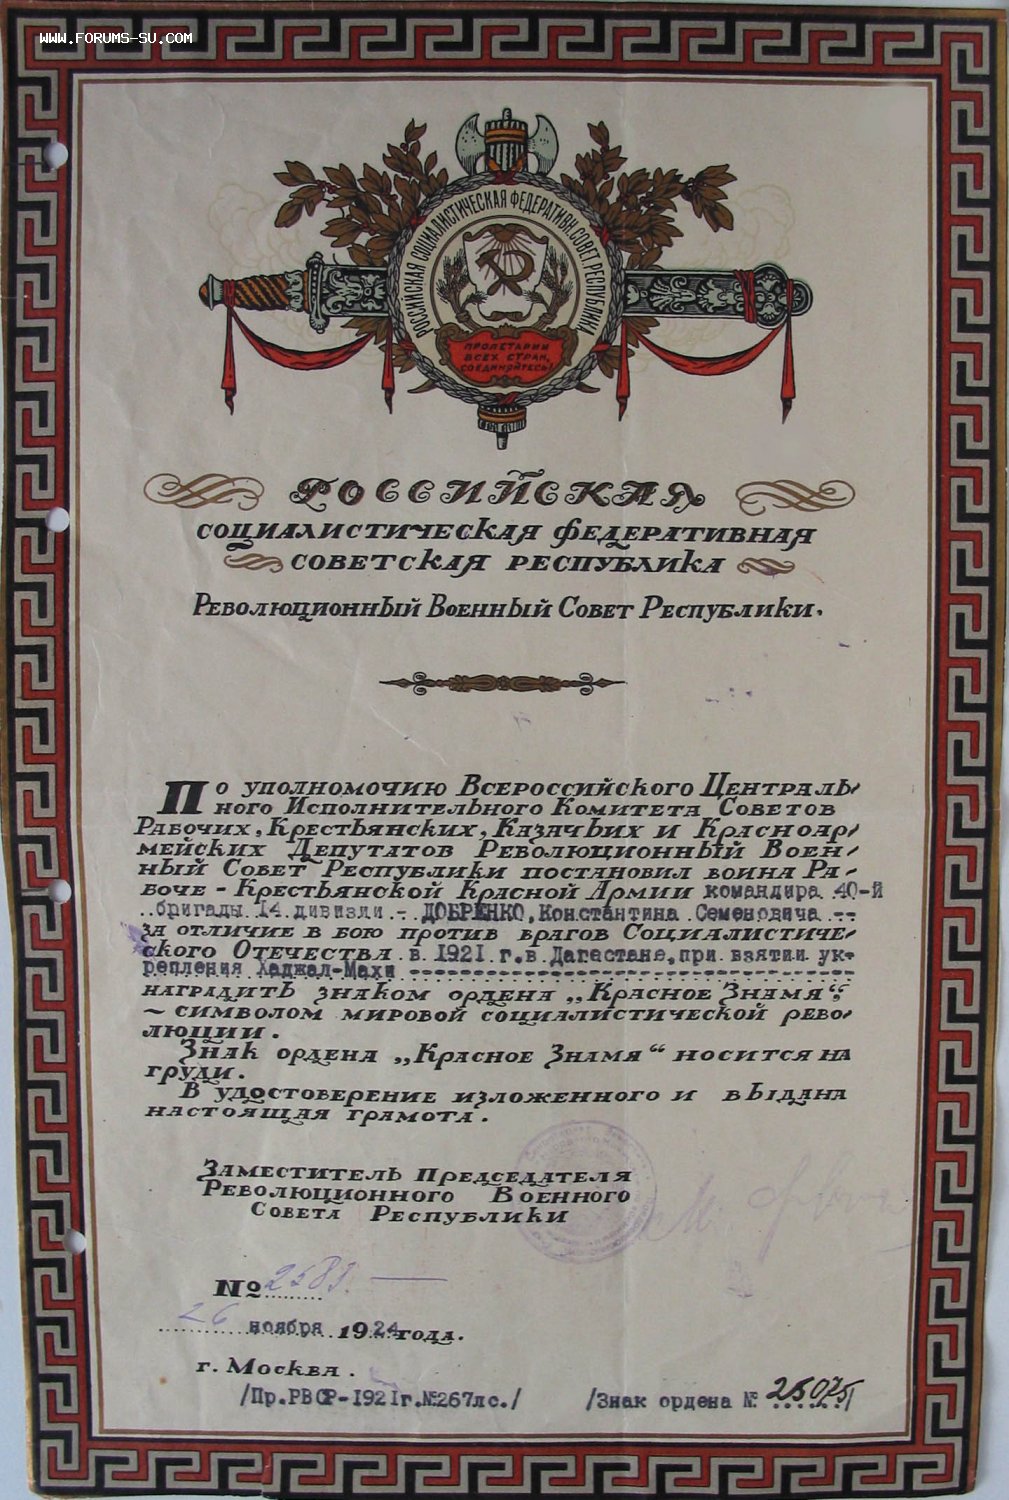 WWW.FORUMS-SU.COM
РОССИЙСКАЯ СОЦИАЛИСТИЧЕСКАЯ ФЕДЕРАТИВН. СОВЕТ. РЕСПУБЛИКА
ПРОЛЕТАРИИ
ВСЕХ СТРАН,
СОЕДИНЯЙТЕСЬ!
РОССИЙСКАЯ
СОЦИАЛИСТИЧЕСКАЯ ФЕДЕРАТИВНАЯ
СОВЕТСКАЯ РЕСПУБЛИКА
РЕВОЛЮЦИОННЫЙ ВОЕННЫЙ СОВЕТ РЕСПУБЛИКИ.
ПО УПОЛНОМОЧИЮ ВСЕРОССИЙСКОГО ЦЕНТРАЛЬ-
НОГО ИСПОЛНИТЕЛЬНОГО КОМИТЕТА СОВЕТОВ
РАБОЧИХ, КРЕСТЬЯНСКИХ, КАЗАЧЬИХ И КРАСНОАР-
МЕЙСКИХ ДЕПУТАТОВ РЕВОЛЮЦИОННЫЙ ВОЕН-
НЫЙ СОВЕТ РЕСПУБЛИКИ ПОСТАНОВИЛ ВОИНА РА-
БОЧЕ - КРЕСТЬЯНСКОЙ КРАСНОЙ АРМИИ командира 40-й
бригады 14 дивизли - ДОБРЕНКО, Константина Семеновича --
ЗА ОТЛИЧИЕ В БОЮ ПРОТИВ ВРАГОВ СОЦИАЛИСТИЧЕ-
СКОГО ОТЕЧЕСТВА в 1921 г. в Дагестане, при взятии ук-
репления Хаджал-Махи
НАГРАДИТЬ ЗНАКОМ ОРДЕНА „КРАСНОЕ ЗНАМЯ“
~ СИМВОЛОМ МИРОВОЙ СОЦИАЛИСТИЧЕСКОЙ РЕВО-
ЛЮЦИИ.
ЗНАК ОРДЕНА „КРАСНОЕ ЗНАМЯ“ НОСИТСЯ НА
ГРУДИ.
В УДОСТОВЕРЕНИЕ ИЗЛОЖЕННОГО И ВЫДАНА
НАСТОЯЩАЯ ГРАМОТА.
ЗАМЕСТИТЕЛЬ ПРЕДСЕДАТЕЛЯ
РЕВОЛЮЦИОННОГО ВОЕННОГО
СОВЕТА РЕСПУБЛИКИ
№ 2583.
26 ноября 1924 ГОДА.
Г. МОСКВА.
/Пр.РВСР-1921г.№267лс./ /Знак ордена № 25075/